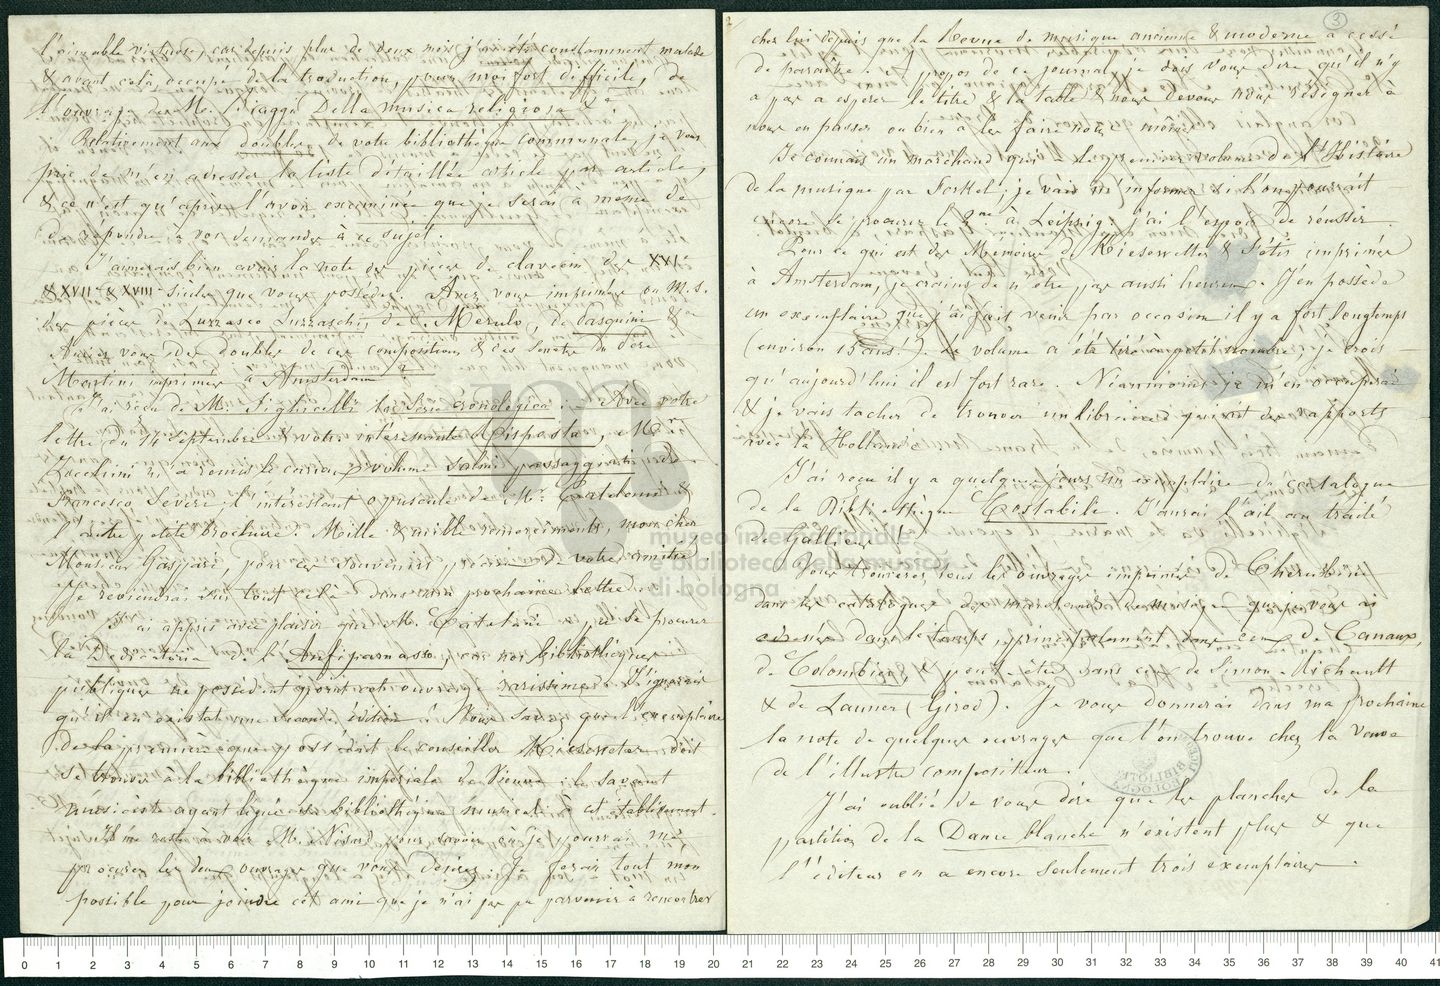 l'aimable virtuose, car depuis plus de deux mois j'ai été constamment malade
& avant cela occupé de la traduction, pour moi fort difficile, de
l'ouvrage de M. Biaggi Della musica religiosa &c.
Relativement aux doubles de votre bibliothèque communale, je vous
prie de m'en adresser la liste détaillée article par article,
& ce n'est qu'après l'avoir examinée que je serai à même de
répondre à vos demandes à ce sujet.
J'aimerais bien avoir la note des pièces de clavecin des XVIe
& XVIIe & XVIIIe siècles que vous possédez. Avez vous imprimées ou M.S.
des pièces de Luzzasco Luzzaschi, de C. Merulo, de Pasquini &a
Avez vous des doubles de ces compositions & des Sonates du Père
Martini imprimées à Amsterdam?
J'ai reçu de M. Sighicelli la Serie cronologica. Avec votre
lettre du 17 septembre & votre intéressante Risposta, M.
m'a remis le curieux volume Salmi passaggiati de
Francesco Severi, l'intéressant opuscule de Mr. Catelani &
l'autre petite brochure. Mille & mille remerciements, mon cher
Monsieur Gaspari, pour ces souvenirs précieux de votre amitié.
Je reviendrai sur tout cela dans ma prochaine lettre.
J'ai appris avec plaisir que M. Catelani a pu se procurer
la Dedicatoria de l'Anfiparnasso, car nos bibliothèques
publiques ne possèdent point cet ouvrage rarissime. J'ignorais
qu'il en existat une seconde édition. Vous savez que l'exemplaire
de la première que possédait le conseiller Kiesewetter doit
se trouver à la bibliothèque impériale de Vienne, le savant
musiciste ayant légué sa bibliothèque musicale à cet établissement.
Il me reste à voir M. Nisard pour savoir où je pourrai me
procurer les deux ouvrages que vous désirez. Je ferai tout mon
possible pour joindre cet ami que je n'ai pas pu parvenir à rencontrer
3
chez lui depuis que la Revue de musique ancienne & moderne a cessé
de paraître. A propos de ce journal, je dois vous dire qu'il n'y
a pas à espérer le titre & la table & nous devons nous résigner à
nous en passer ou bien à les faire nous mêmes.
Je connais un marchand qui a le premier volume de l'Histoire
de la musique par Forkel; je vais m'informer si l'on pourrait
encore se procurer le 2me à Leipzig; j'ai l'espoir de réussir.
Pour ce qui est des Mémoires de Kiesewetter & Fétis imprimés
à Amsterdam, je crains de n'être pas aussi heureux. J'en possède
un exemplaire que j'ai fait venir par occasion il y a fort longtemps
(environ 15 ans!). Le volume a été tiré à petit nombre; je crois
qu'aujourd'hui il est fort rare. Néanmoins je m'en occuperai
& je vais tacher de trouver un libraire qui ait des rapports
avec la Hollande.
J'ai reçu il y a quelques jours un exemplaire du catalogue
de la Bibliothèque Costabile. J'aurai l'œil au traité
de Gaffurius!
Vous trouverez tous les ouvrages imprimés de Cherubini
dans les catalogues des marchands de musique que je vous ai
adressés dans le temps, principalement dans ceux de Canaux,
de Colombier, & peut-être dans ceux de Simon Richault
& de Launer (Girod). Je vous donnerai dans ma prochaine
la note de quelques ouvrages que l'on trouve chez la Veuve
de l'illustre compositeur.
J'ai oublié de vous dire que les planches de la
partition de la Dame blanche n'existent plus & que
l'éditeur en a encore seulement trois exemplaires.
museo internazionale
e biblioteca della musica
di bologna
0 1 2 3 4 5 6 7 8 9 10 11 12 13 14 15 16 17 18 19 20 21 22 23 24 25 26 27 28 29 30 31 32 33 34 35 36 37 38 39 40 41